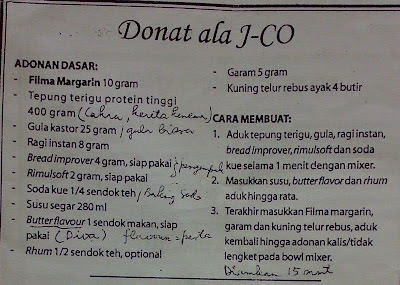 Donat ala J-CO
ADONAN DASAR:
- Filma Margarin 10 gram
- Tepung terigu protein tinggi
400 gram (Cakra, kereta kencana)
- Gula kastor 25 gram / gula biasa
- Ragi instan 8 gram
- Bread improver 4 gram, siap pakai / pengempuk
- Rimulsoft 2 gram, siap pakai
- Soda kue 1/4 sendok teh / Baking soda
- Susu segar 280 ml
- Butterflavour 1 sendok makan, siap
pakai (Diva) flavour = pasta
- Rhum 1/2 sendok teh, optional
- Garam 5 gram
- Kuning telur rebus ayak 4 butir
CARA MEMBUAT:
1. Aduk tepung terigu, gula, ragi instan,
bread improver, rimulsoft dan soda
kue selama 1 menit dengan mixer.
2. Masukkan susu, butterflavor dan rhum
aduk hingga rata.
3. Terakhir masukkan Filma margarin,
garam dan kuning telur rebus, aduk
kembali hingga adonan kalis/tidak
lengket pada bowl mixer.
Diamkan 15 mnt